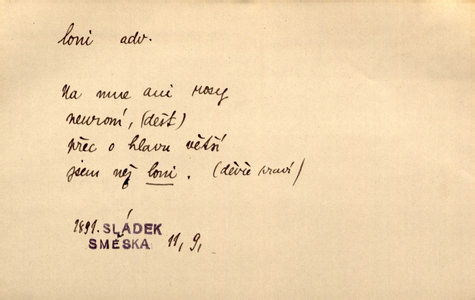 loni adv.
Na mne ani rosy
neuroní, (déšť)
přec o hlavu větší
jsem něž loni. (děvče praví)
1891. SLÁDEK
SMĚSKA 11, 9,